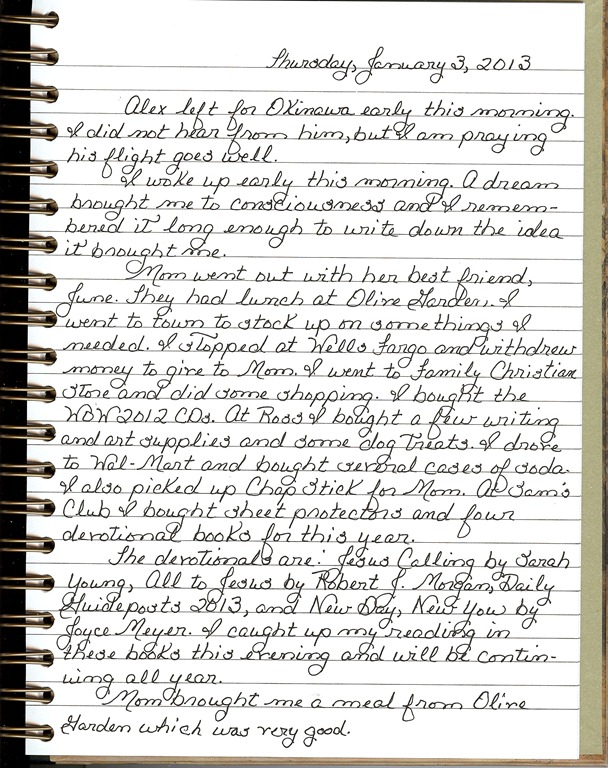 Thursday, January 3, 2013
Alex left for Okinawa early this morning.
I did not hear from him, but I am praying
his flight goes well.
I woke up early this morning. A dream
brought me to consciousness and I remem-
bered it long enough to write down the idea
it brought me.
Mom went out with her best friend,
June. They had lunch at Olive Garden. I
went to town to stock up on somethings I
needed. I stopped at Wells Fargo and withdrew
money to give to Mom. I went to Family Christian
Store and did some shopping. I bought the
WOW 2012 CDs. At Ross I bought a few writing
and art supplies and some dog treats. I drove
to Wal-Mart and bought several cases of soda.
I also picked up Chap Stick for Mom. At Sam's
Club I bought sheet protectors and four
devotional books for this year.
The devotionals are: Jesus Calling by Sarah
Young, All to Jesus by Robert J. Morgan, Daily
Guideposts 2013, and New Day, New You by
Joyce Meyer. I caught up my reading in
these books this evening and will be contin-
uing all year.
Mom brought me a meal from Olive
Garden which was very good.